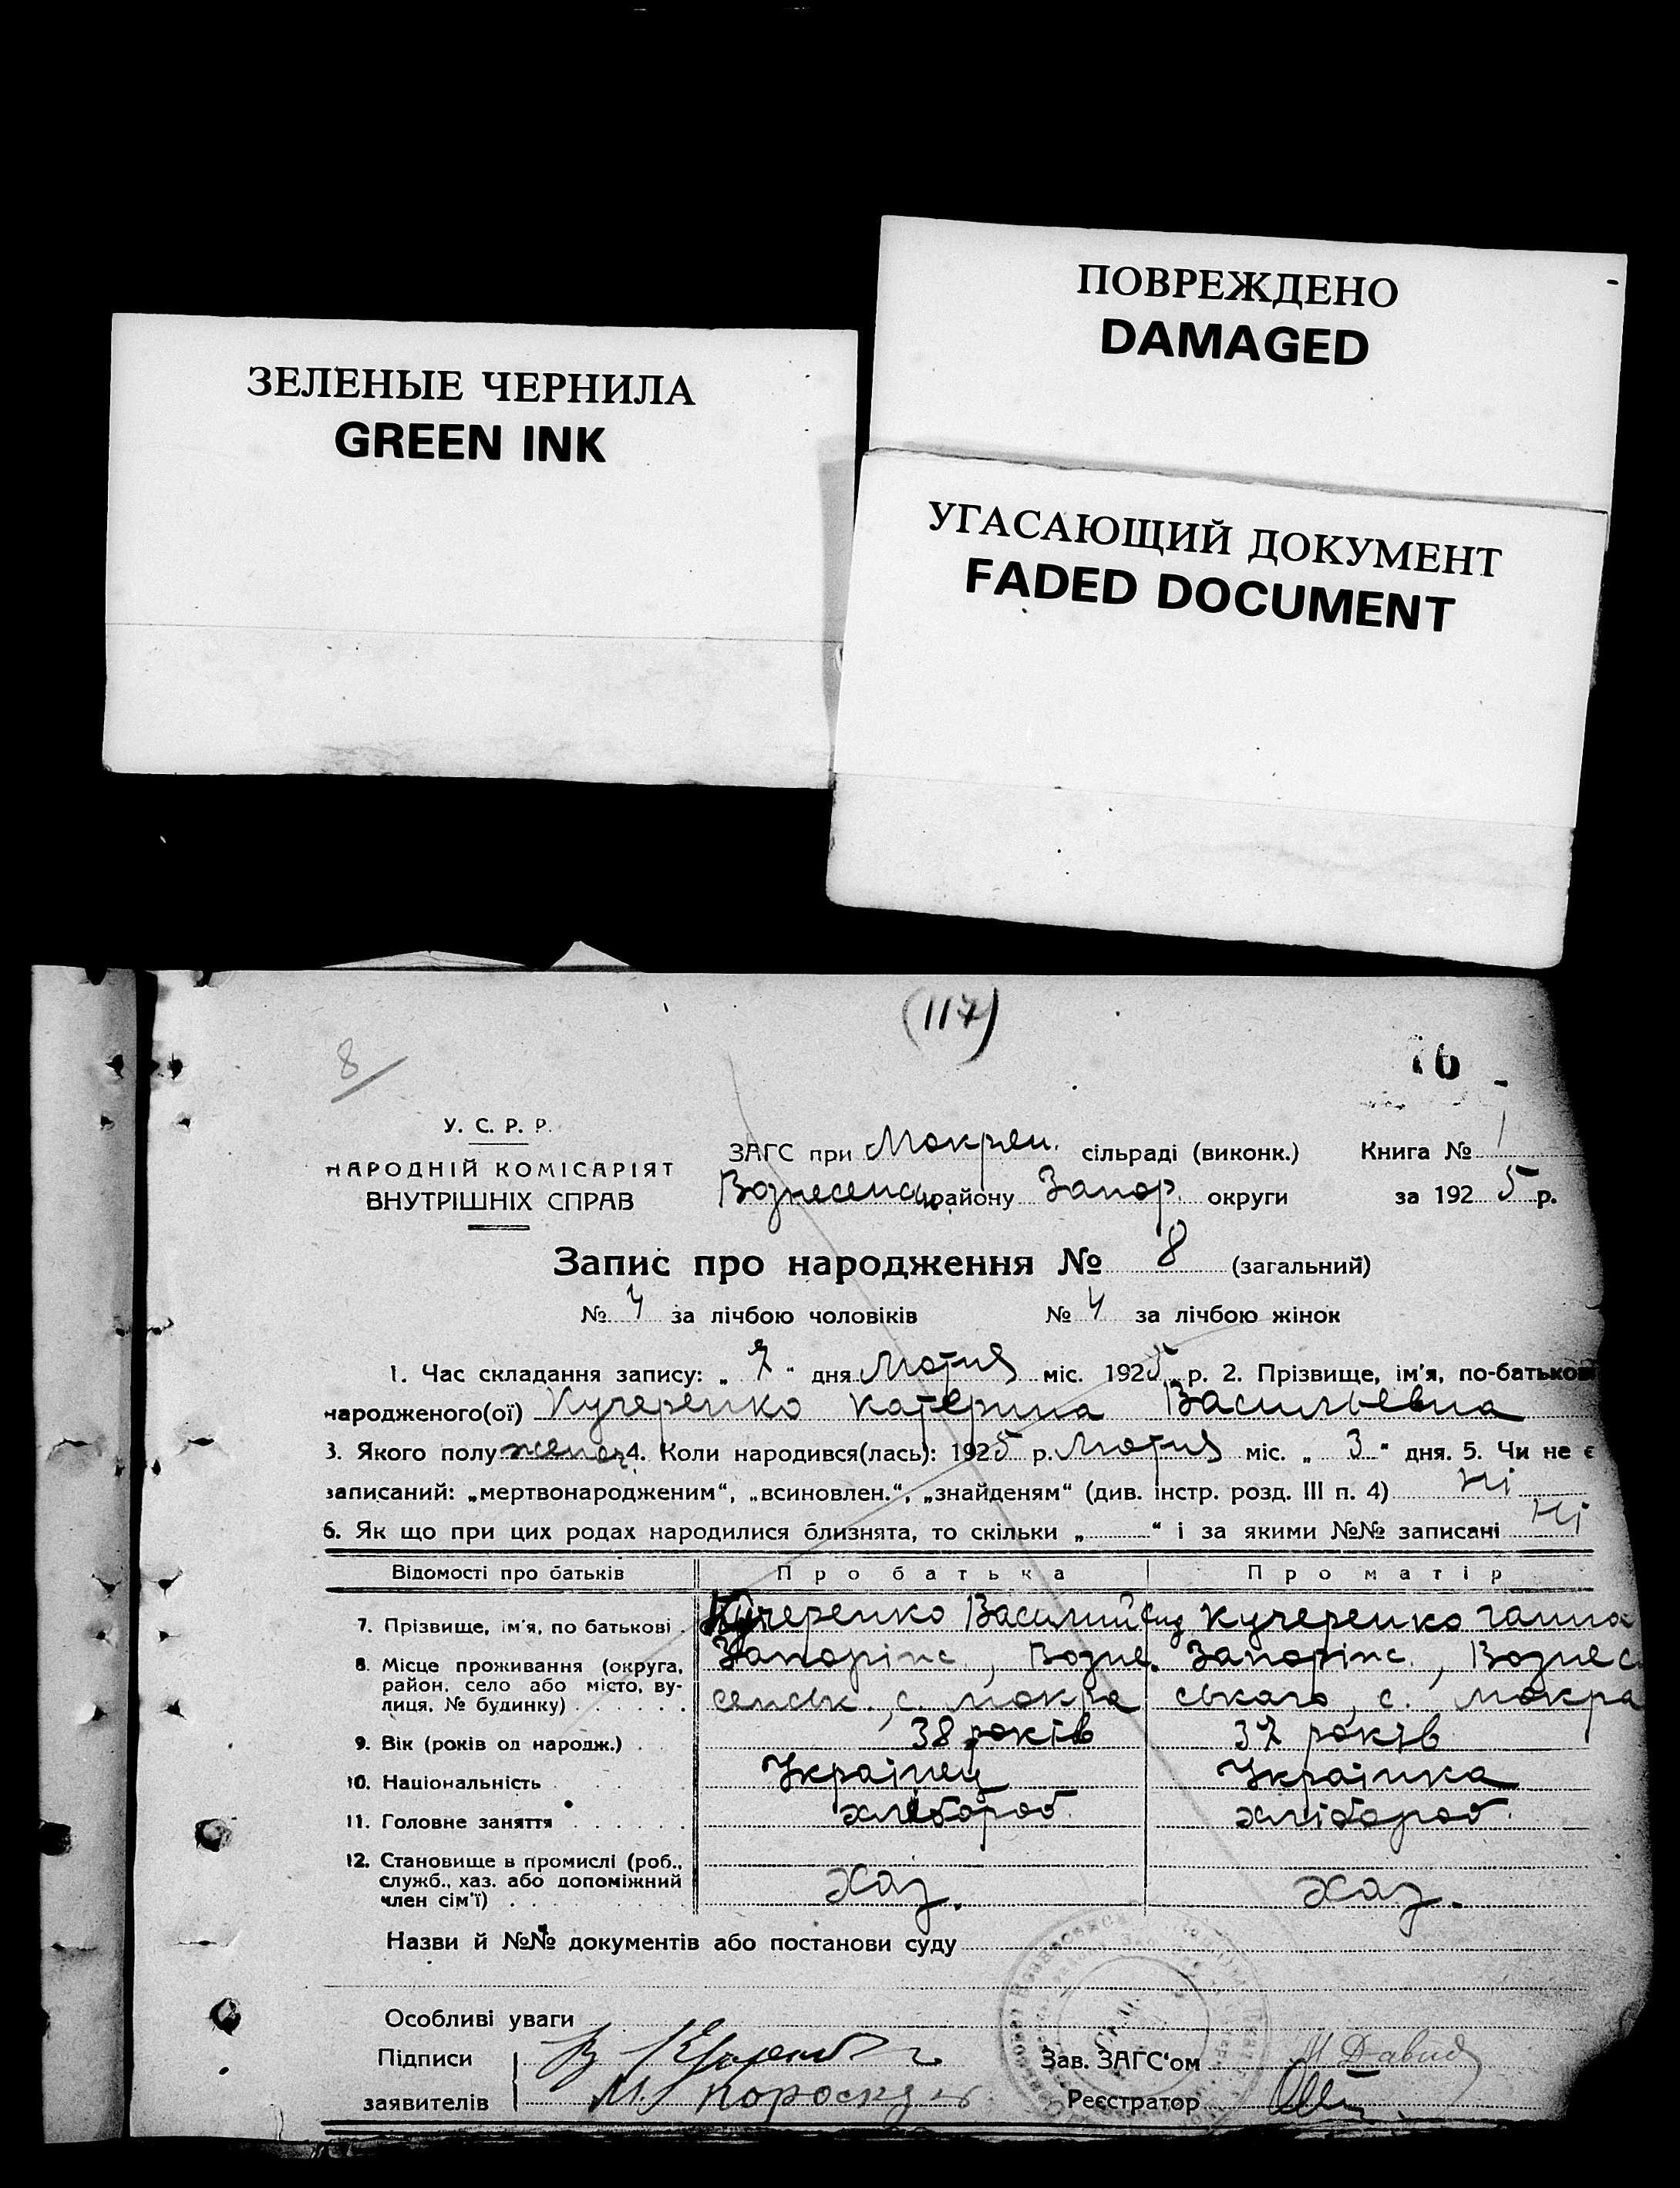 ПОВРЕЖДЕНО
DAMAGED
ЗЕЛЕНЫЕ ЧЕРНИЛА
GREEN INK
УГАСАЮЩИЙ ДОКУМЕНТ
FADED DOCUMENT
(117)
8
У. С. Р. Р.
НАРОДНІЙ КОМІСАРІЯТ
ВНУТРІШНІХ СПРАВ
ЗАГС при Мокрян. сільраді (виконк.) Книга № 1
Вознесенськ району Запор. округи за 1925 р.
Запис про народження № 8 (загальний)
№ 4 за лічбою чоловіків № 4 за лічбою жінок
1. Час складання запису: „ 7 “ дня Мотня міс. 1925 р. 2. Прізвище, ім'я, по-батькові
народженого(ої) Кучеренко Катерина Васильевна
3. Якого полу женс. 4. Коли народився(лась): 1925 р. Мотня міс. „ 3 “ дня. 5. Чи не є
записаний: „мертвонародженим“, „всиновлен.“, „знайденям“ (див. інстр. розд. III п. 4) Ні
6. Як що при цих родах народилися близнята, то скільки „ “ і за якими №№ записані Ні
Відомості про батьків Про батька Про матір
7. Прізвище, ім'я, по батькові Кучеренко Василий Кучеренко Ганна
8. Місце проживання (округа, район, село або місто, вулиця, № будинку) Запоріжс., Возне- Запоріжс., Вознес
сенськ., с. Мокра ськаго, с. Мокра
9. Вік (років од народж.) 38 років 37 років
10. Національність Українец Українка
11. Головне заняття хлебороб хлібороб.
12. Становище в промислі (роб.,
служб., хаз. або допоміжний
член сім'ї) Хаз. Хаз.
Назви й №№ документів або постанови суду
Особливі уваги
Підписи
заявителів
Зав. ЗАГС'ом М Давид
Реєстратор